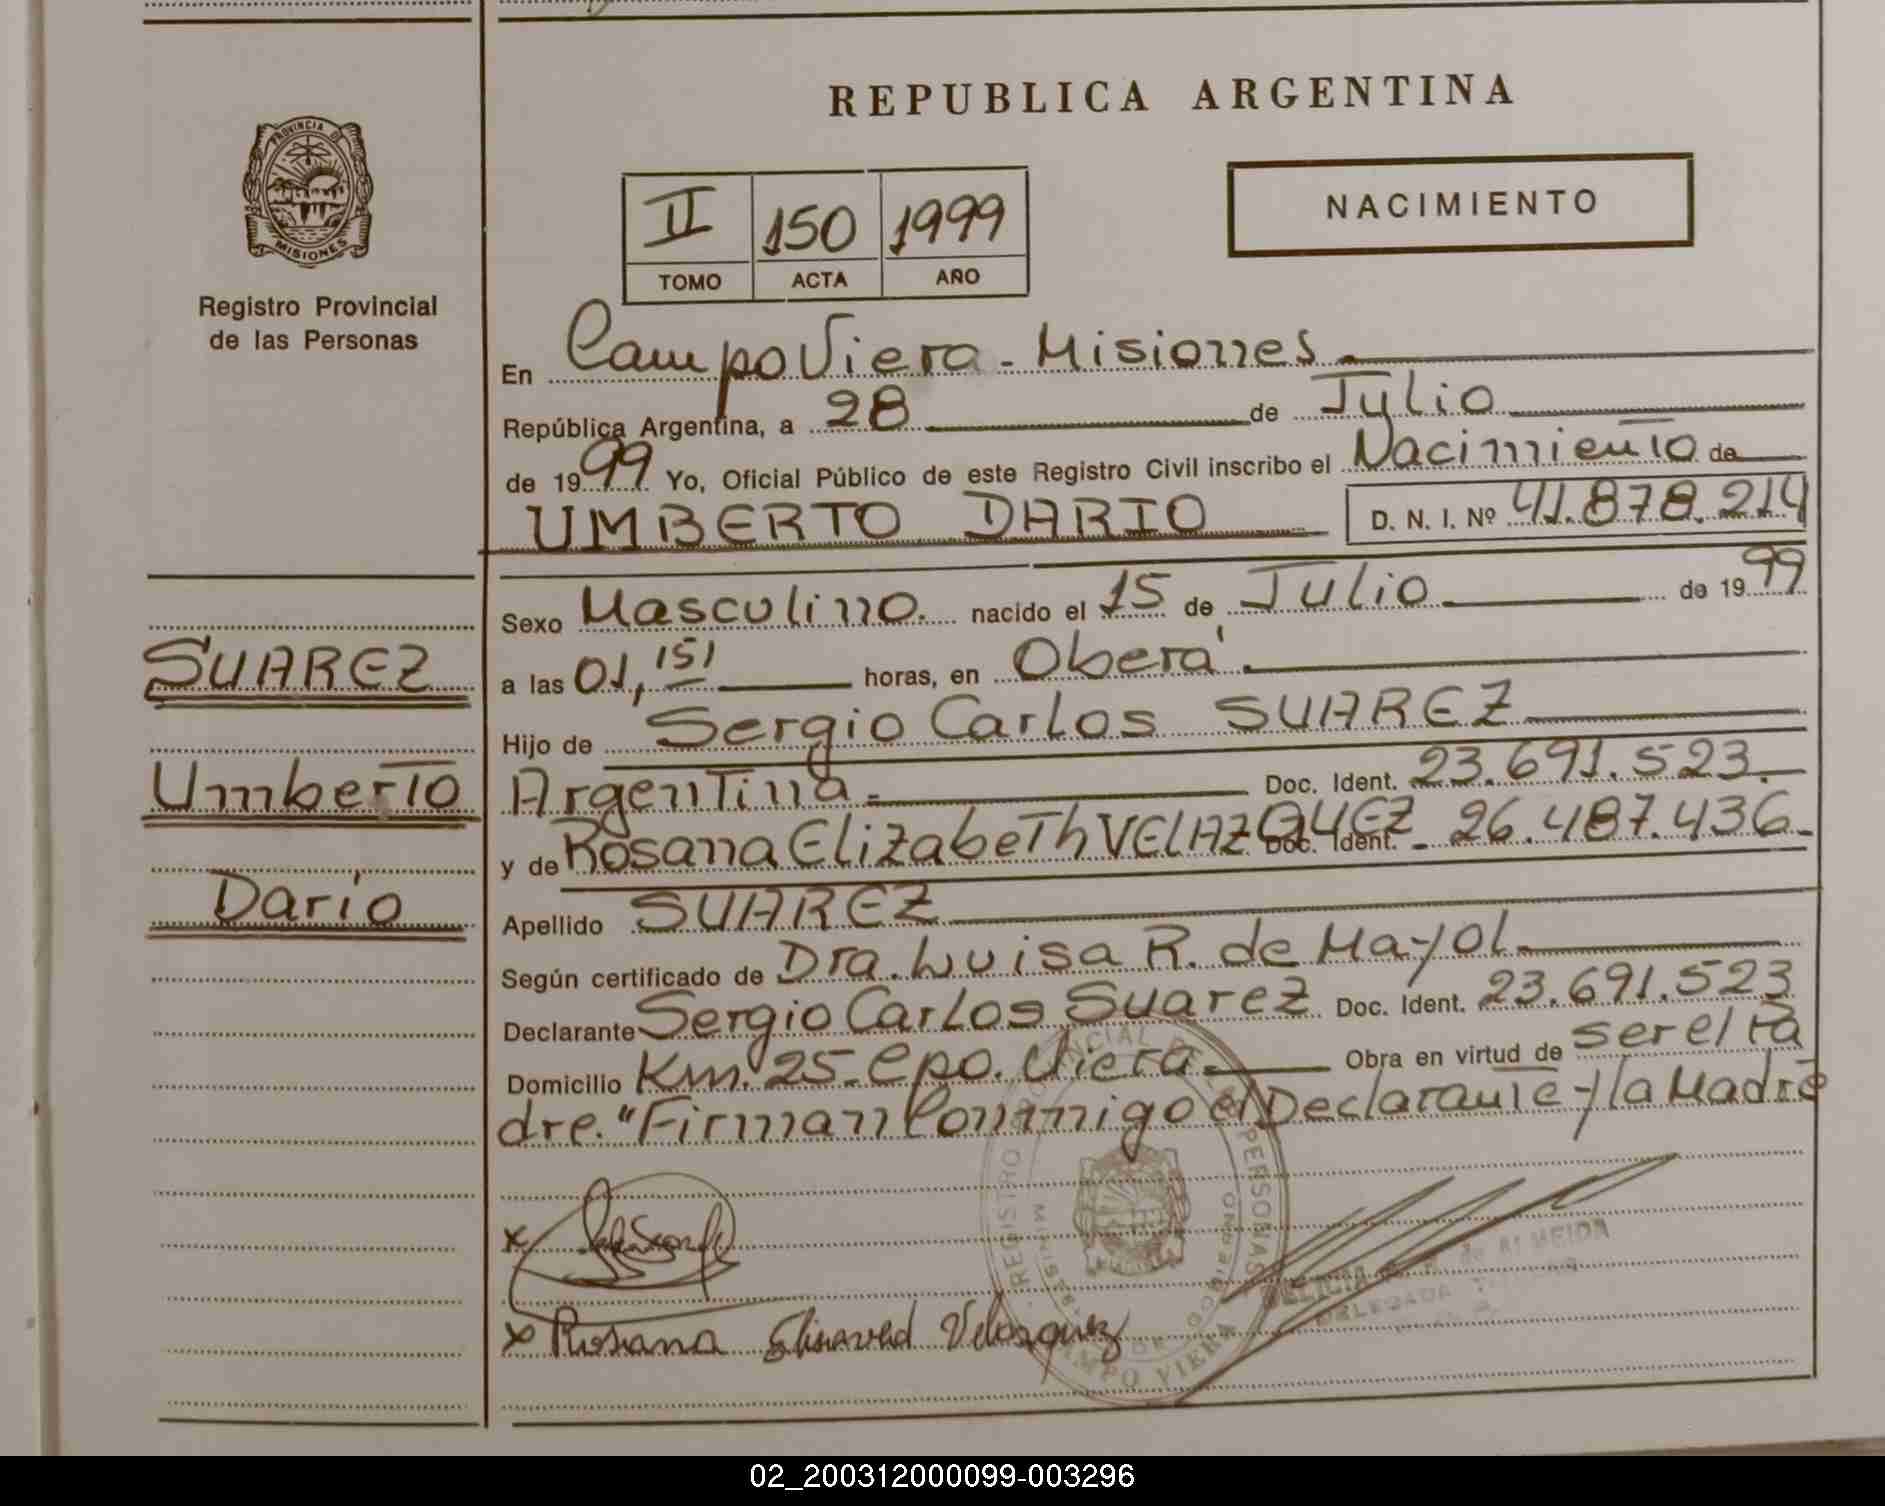 REPUBLICA ARGENTINA
PROVINCIA DE
MISIONES
Registro Provincial
de las Personas
II 150 1999
TOMO ACTA AÑO
NACIMIENTO
En Campo Viera - Misiones
República Argentina, a 28 de Julio
de 1999 Yo, Oficial Público de este Registro Civil inscribo el Nacimiento de
UMBERTO DARIO D. N. I. Nº 41.878.214
Sexo Masculino. nacido el 15 de Julio de 1999
SUAREZ
a las 01,15' horas, en Oberá.
Hijo de Sergio Carlos SUAREZ
Umberto
Argentina Doc. Ident. 23.691.523.
y de Rosana Elizabeth VELAZQUEZ Doc. Ident. - 26.487.436-
Dario
Apellido SUAREZ
Según certificado de Dra. Luisa R. de Mayol
Declarante Sergio Carlos Suarez Doc. Ident. 23.691.523
Domicilio Km. 25- Cpo. Viera Obra en virtud de ser el Pa
dre. "Firman Conmigo el Declarante y la Madre
REGISTRO PROVINCIAL DE LAS PERSONAS
CAMPO VIERA
MISIONES
x
de ALMEIDA
DELEGADA TITULAR
x Rosana Elisaved Velazquez
02_200312000099-003296